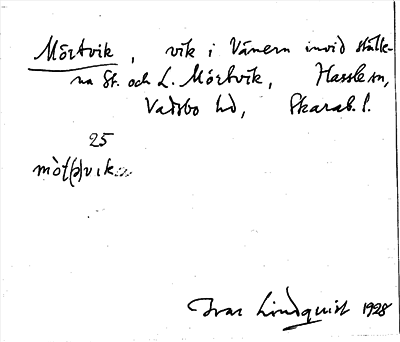 Mörtvik, vik i Vänern invid ställe-
na St. och L. Mörtvik, Hassle sn,
Vadsbo hd, Skarab. l.
25
mòt(ə)vık
Ivar Lindquist 1928